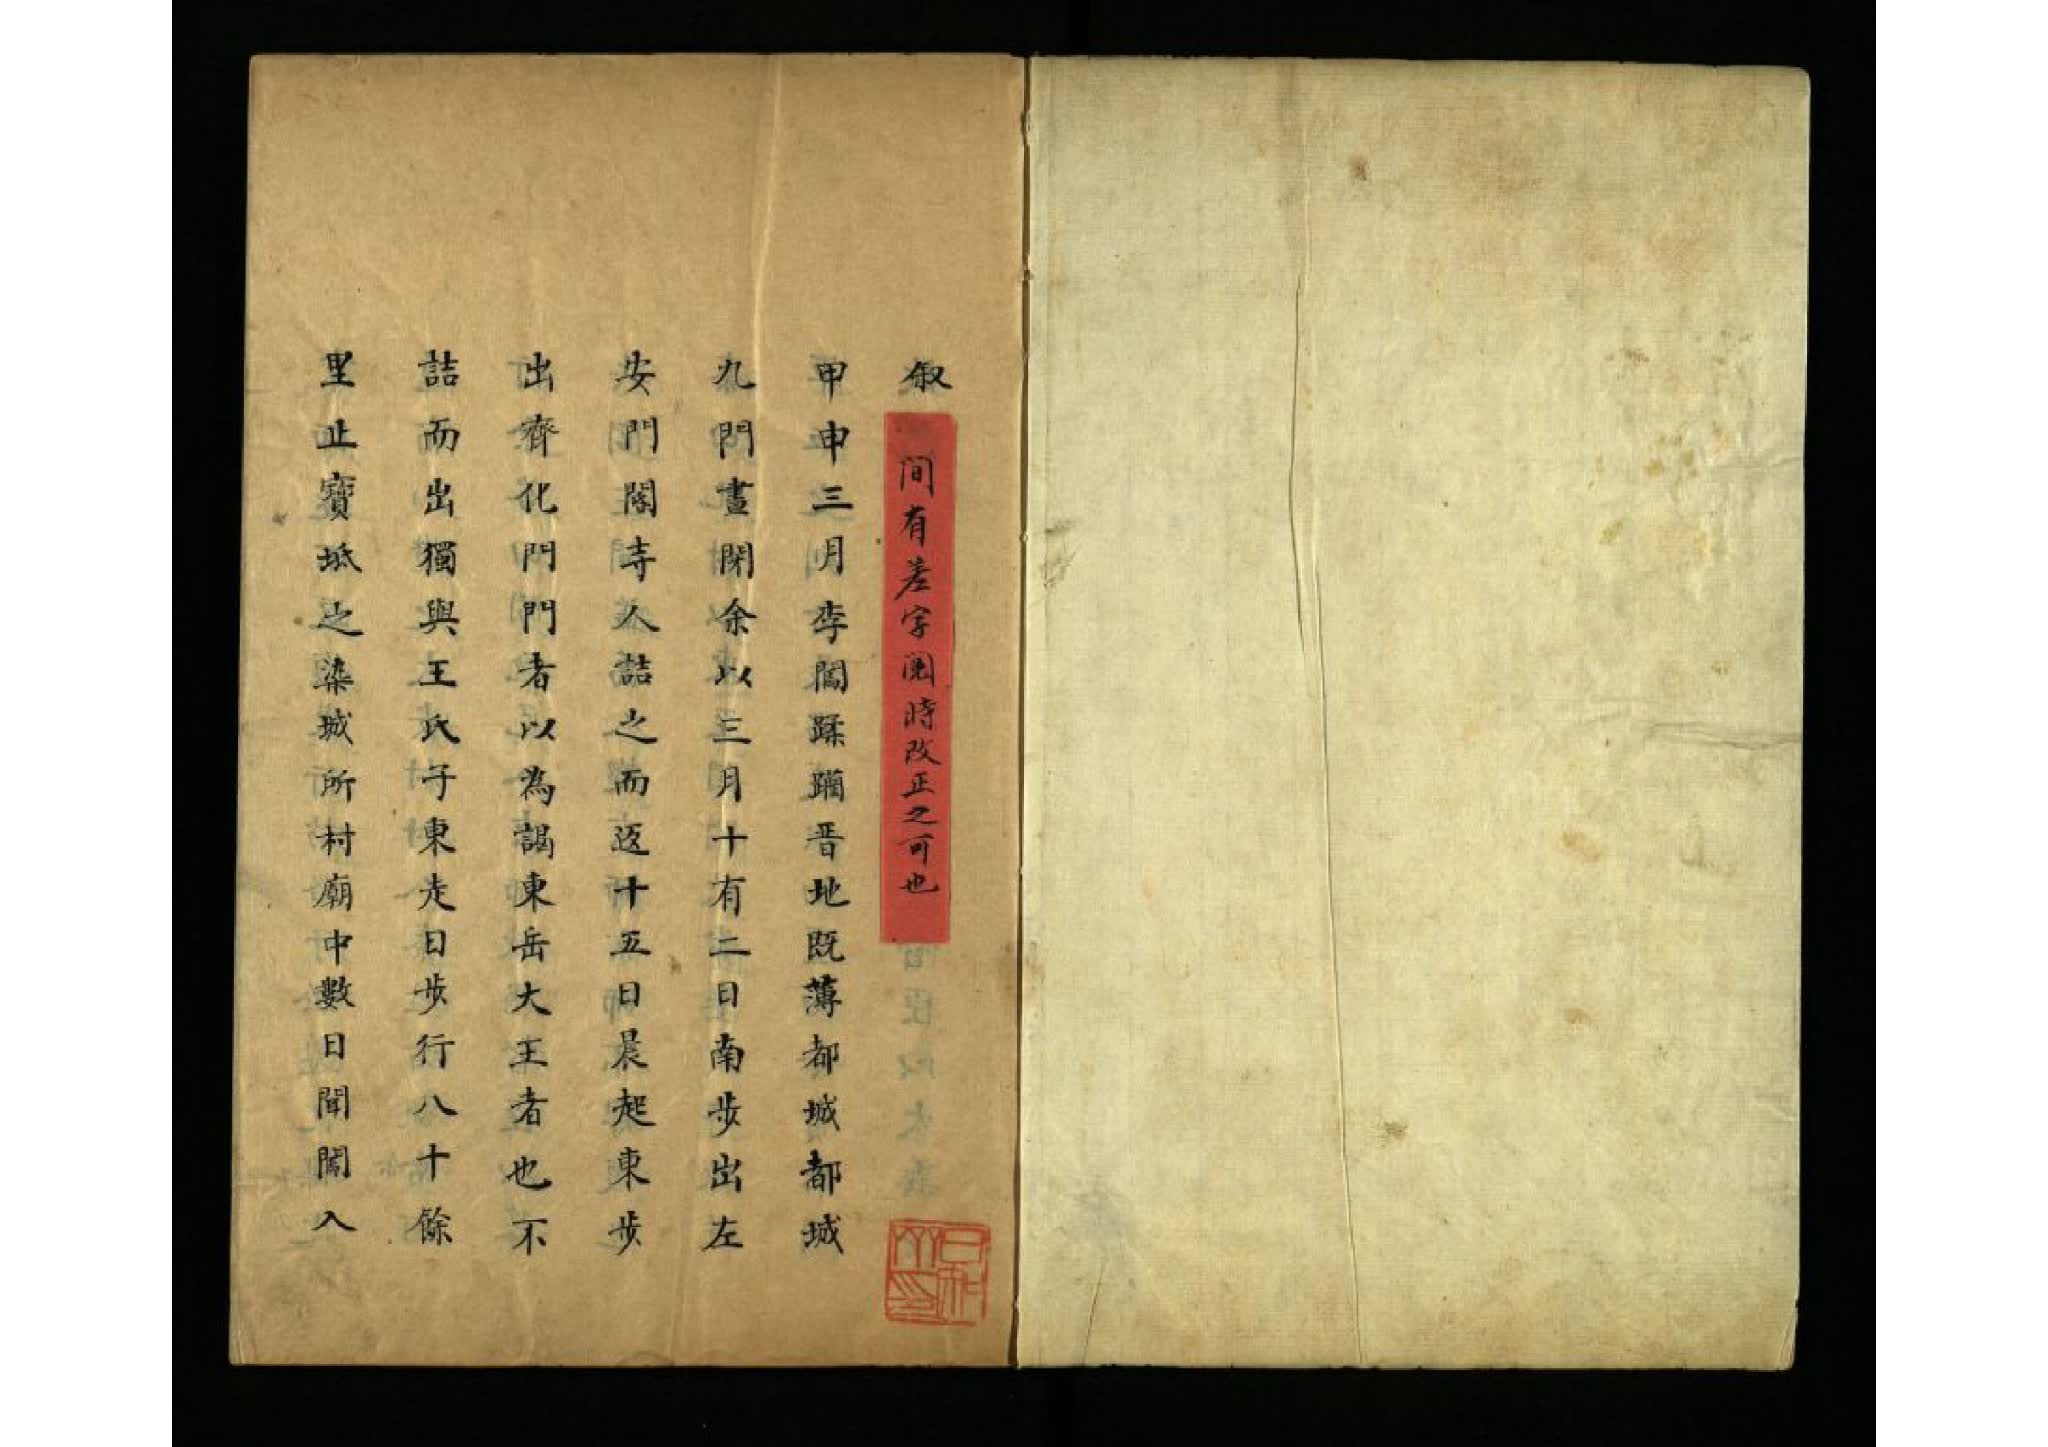 叙
間有差字閱時改正之可也
甲申三月李闖蹂躪晋地既薄都城都城
九門晝閉余以三月十有二日南步出左
安門閽寺人詰之而返十五日晨起東步
出齊化門門者以為謁東岳大王者也不
詰而出獨與王氏子東走日步行八十餘
里止寶坻之染城所村廟中數日聞闖入